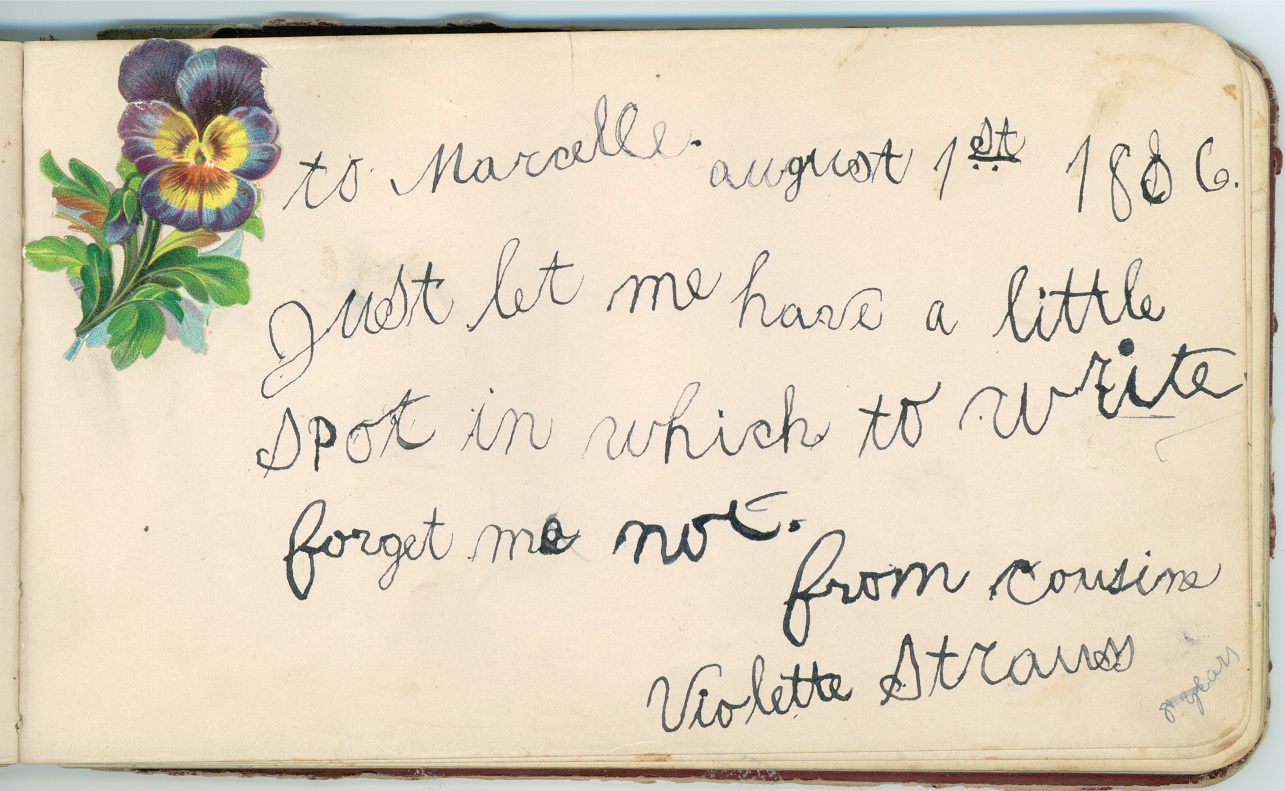 to Marcelle. august 1st 1886.
Just let me have a little
spot in which to write
forget me not.
from cousine
Violette Strauss
8 years